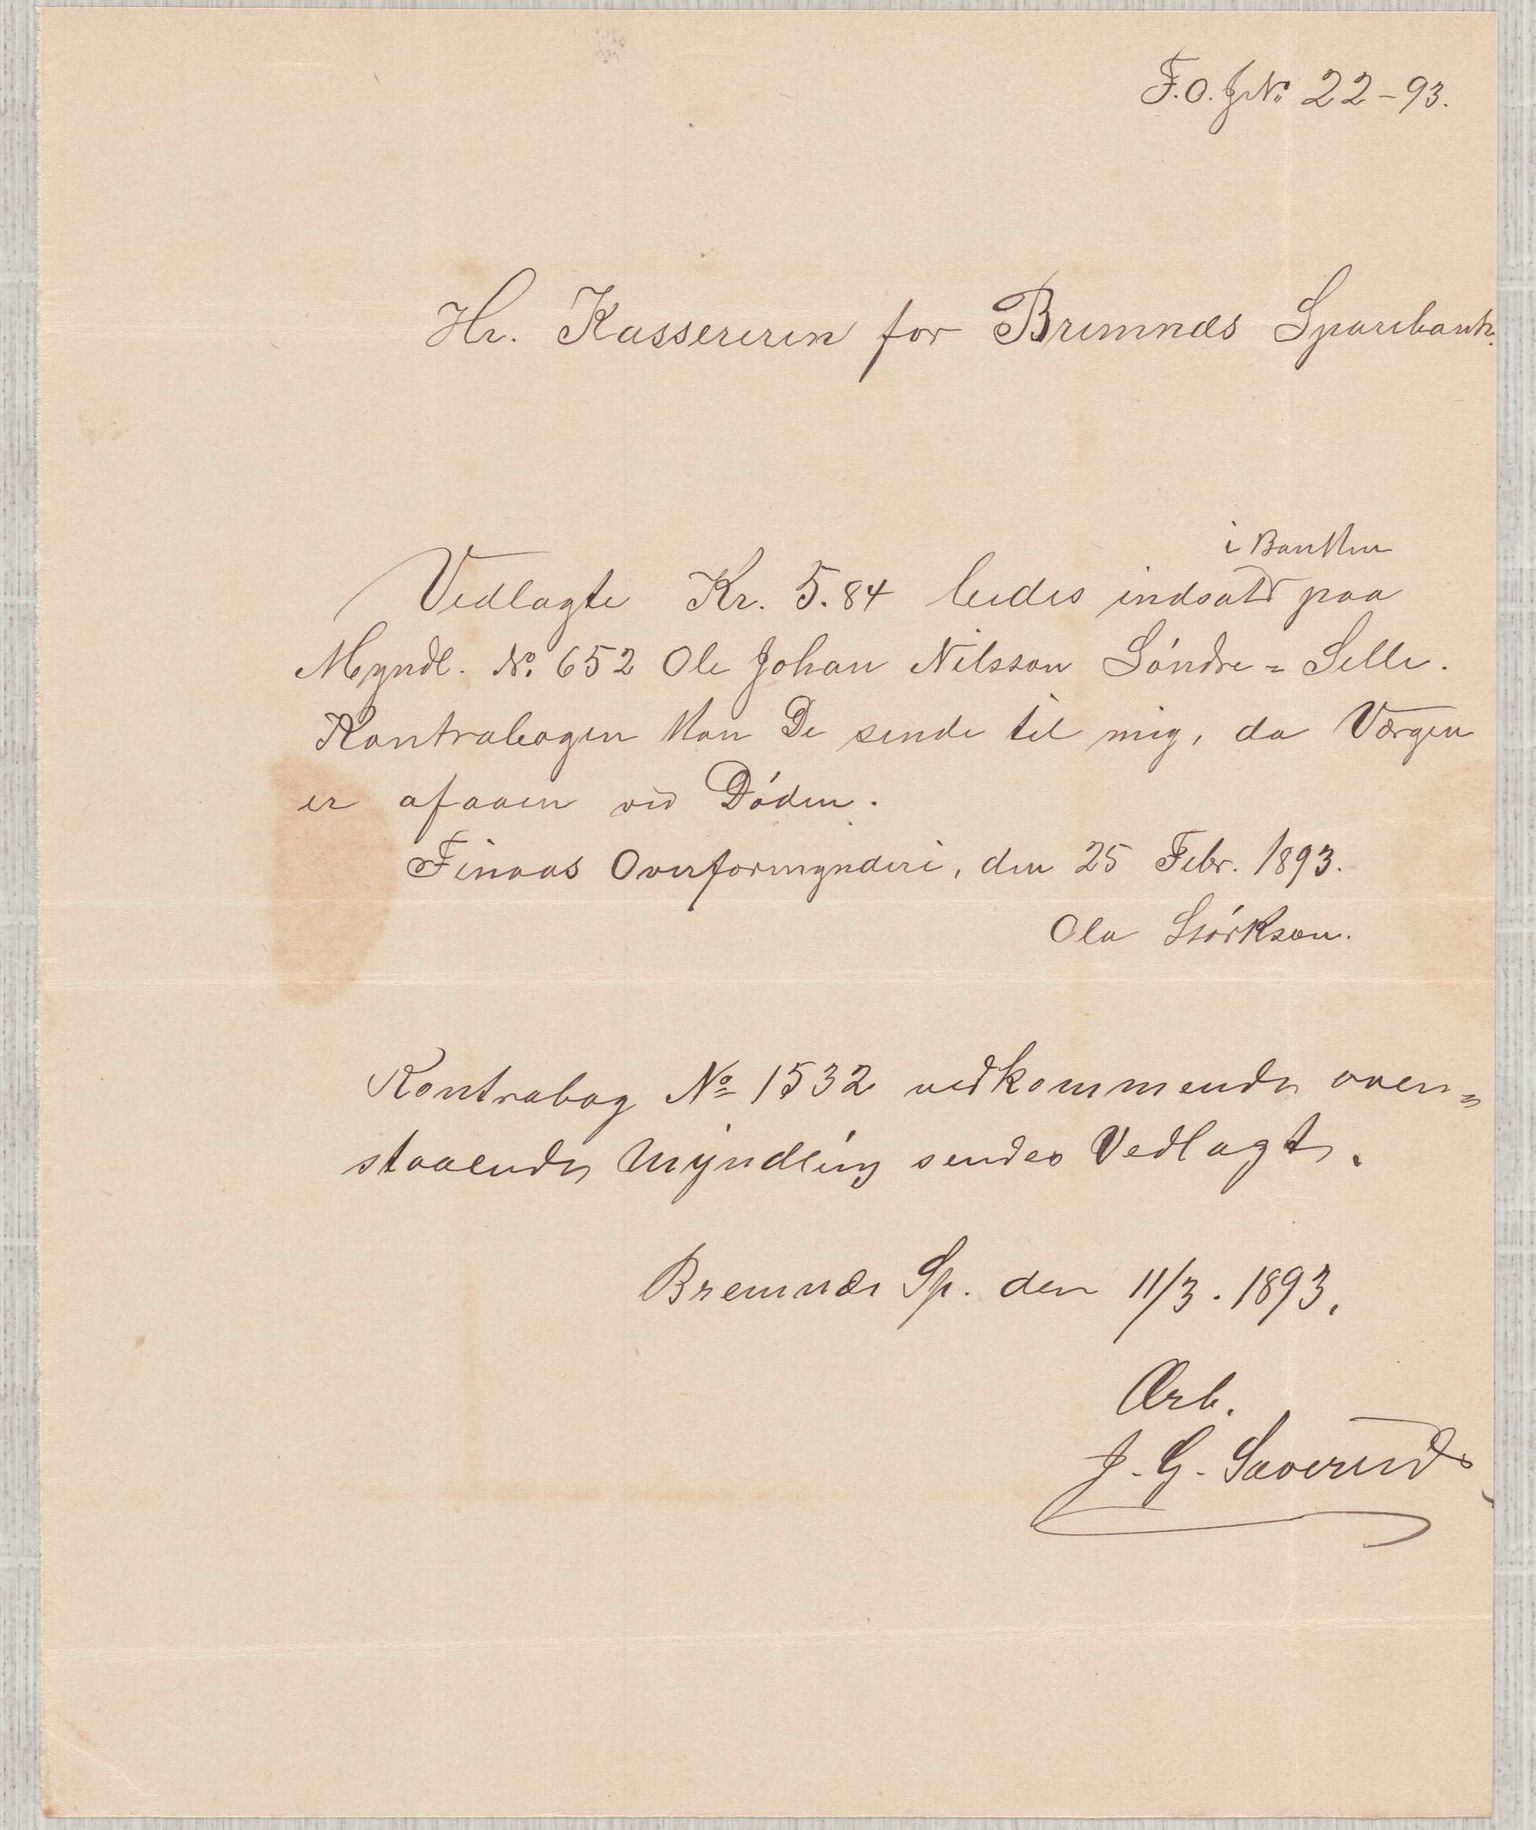 F.O. J.N: 22-93.
Hr. Kassereren for Bremnæs Sparebank.
i Banken
Vedlagte Kr. 5.84 bedes indsatt paa
Myndl. No. 652 Ole Johan Nilsson Søndre = Selle.
Kontrabogen kan De sende til mig, da Værgen
er afaaen ved Døden.
Finaas Overformynderi, den 25 Febr. 1893.
Ola Størkson.
Kontrabog No 1532 vedkommende oven=
staaende Myndling sendes Vedlagt.
Bremnæs Sp. den 11/3. 1893.
Ærb.
J. G. Sæverud